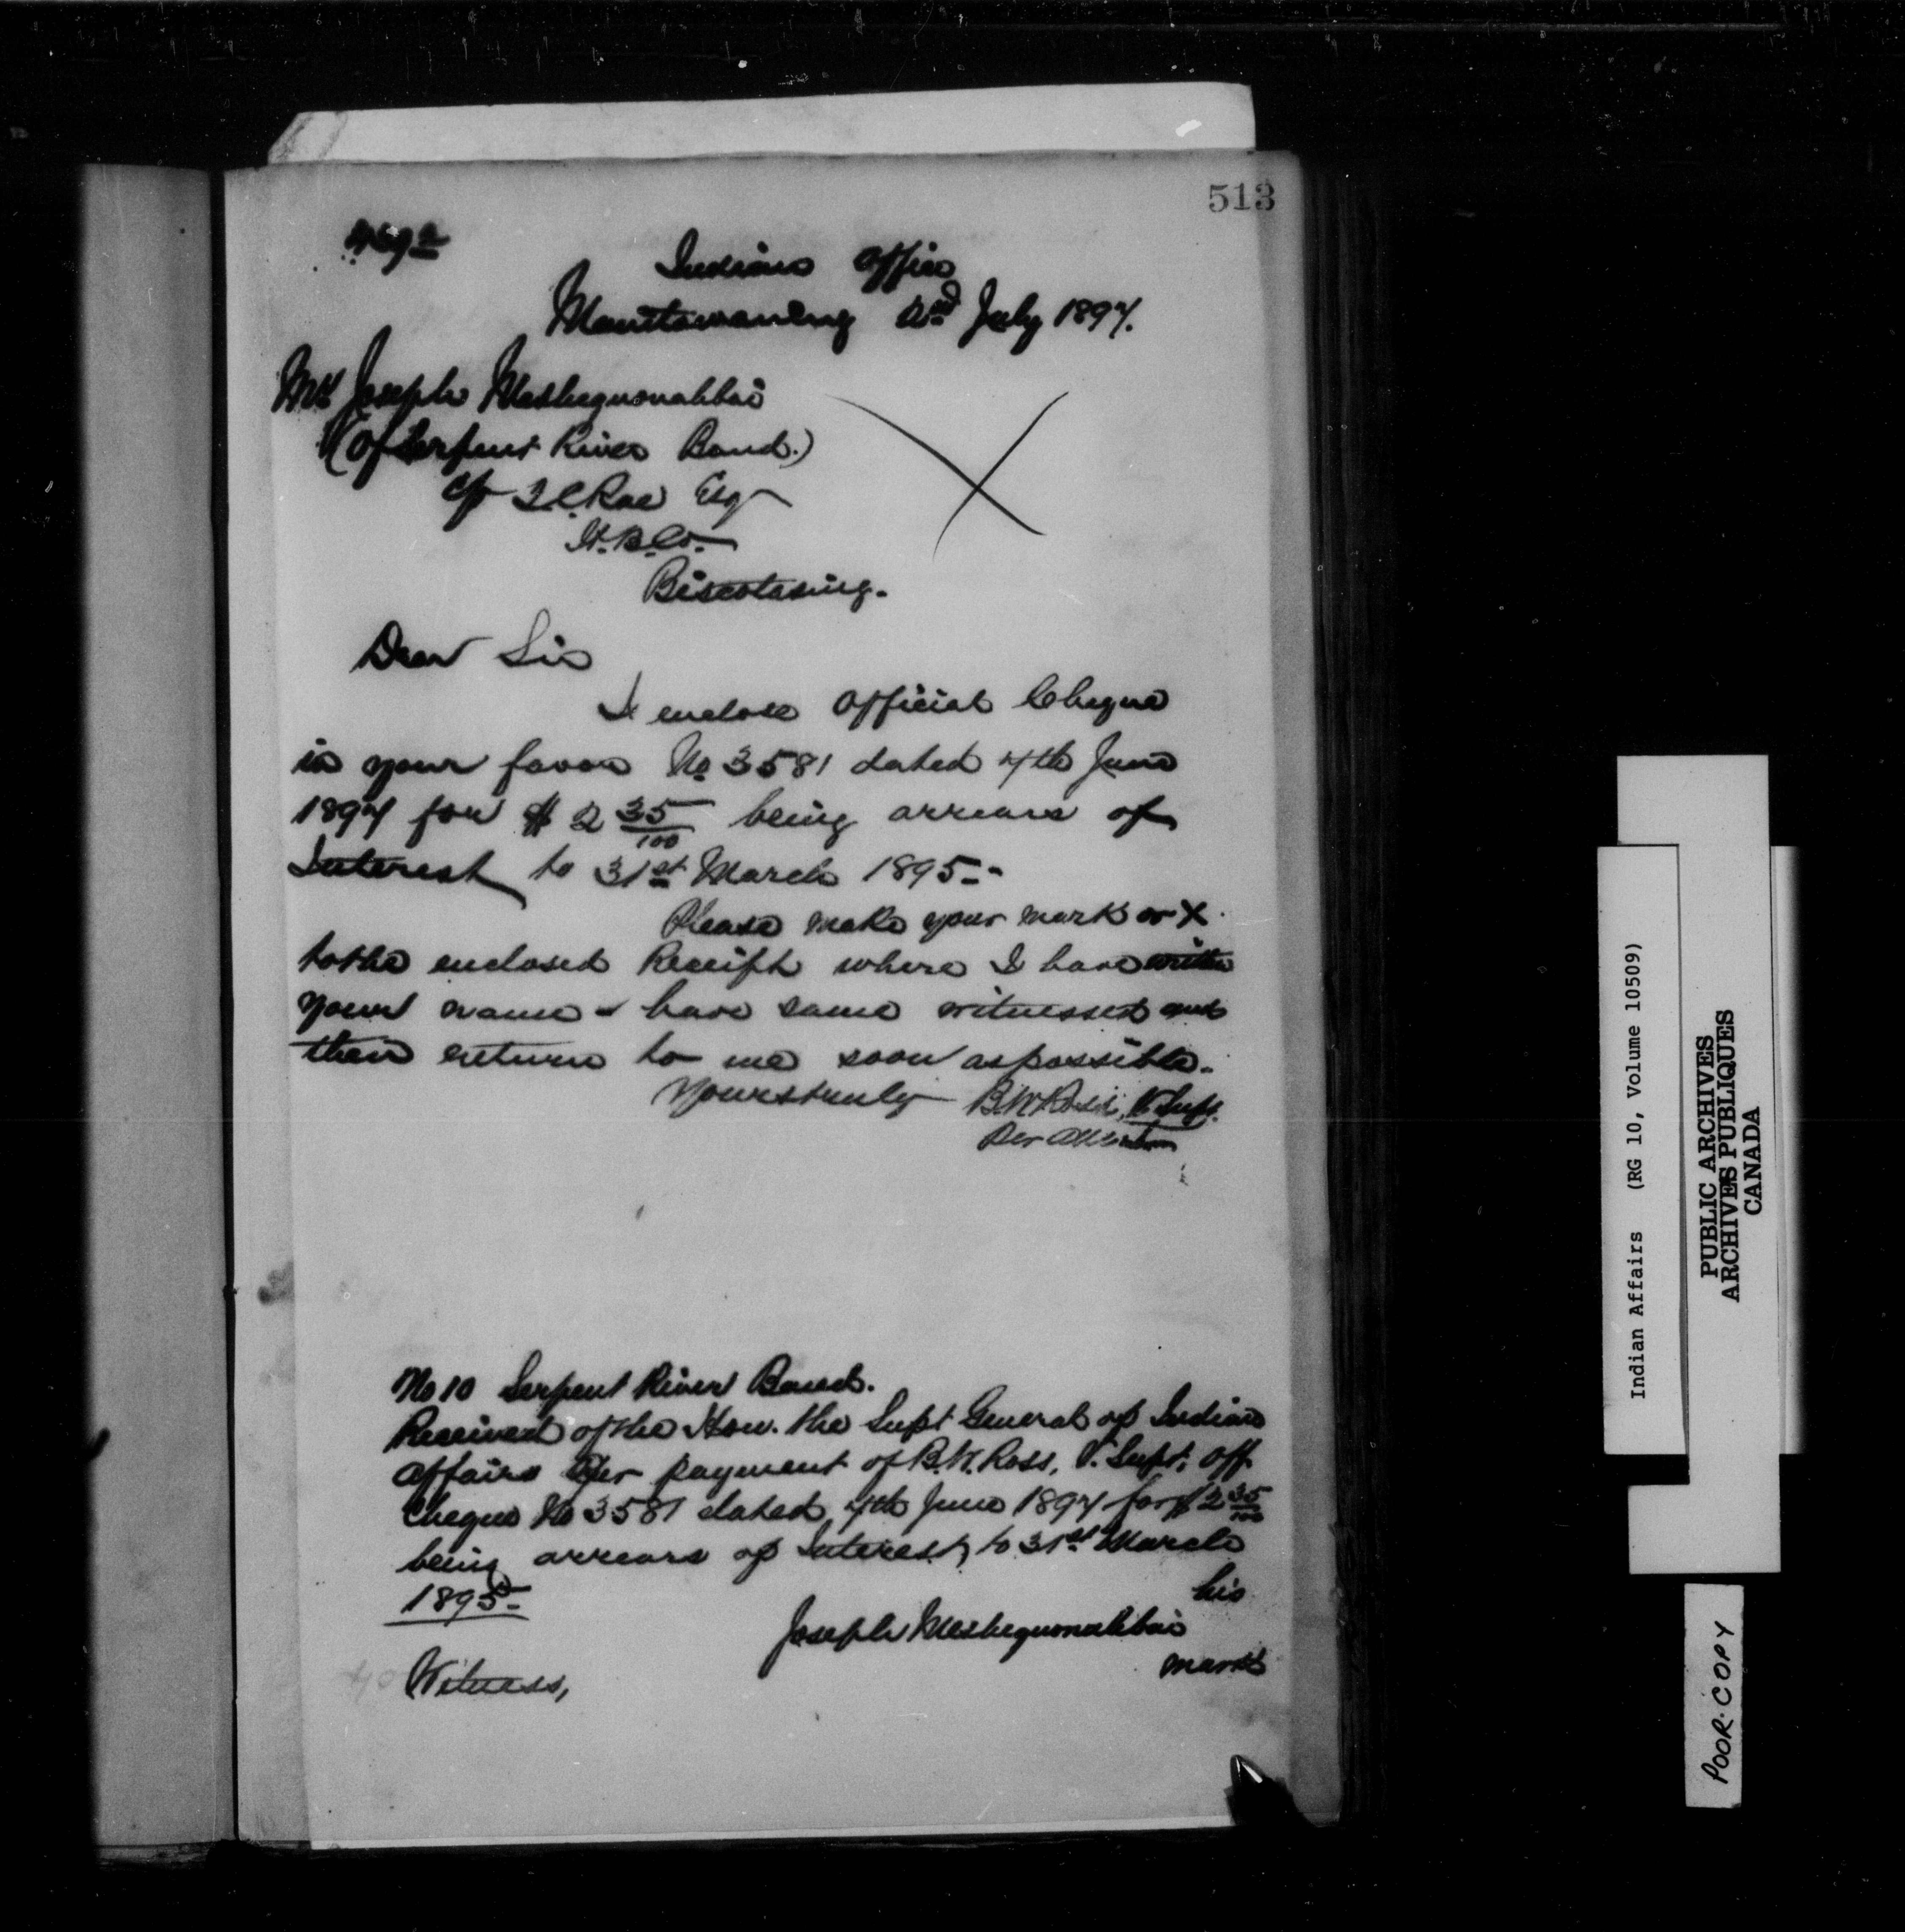 513
Indian Office
Manitowaning 2nd July 1897.
Mr Joseph Meshequonabbai
(Of Serpent River Band.)
c/o T.C. Rae Esq
H.B.Co.
Biscotasing.
Dear Sir
I enclose Official Cheque
in your favor No 3581 dated 7th June
1897 for $2 35/100 being arrears of
Interest to 31st March 1895.-
Please make your mark or X
to the enclosed Receipt where I have written
your name & have same witnessed and
then return to me soon as possible.
Yours truly B.W. Ross, V. Supt.
Per
No 10 Serpent River Band.
Received of the Hon. the Supt General of Indian
Affairs per payment of B.W. Ross, V. Supt. Off.
Cheque No 3581 dated 7th June 1897 for $2 35/100
being arrears of Interest to 31st March
1895-
his
Joseph Meshequonabbai
mark
Witness,
Indian Affairs (RG 10, Volume 10509)
PUBLIC ARCHIVES
ARCHIVES PUBLIQUES
CANADA
POOR COPY